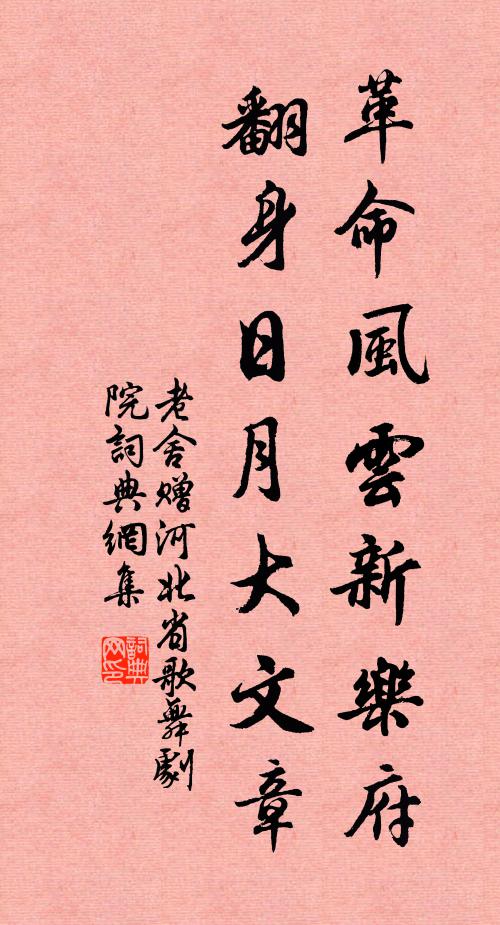 革命風雲新樂府
翻身日月大文章
老舍贈河北省歌舞劇
院詞典網集
詞典
网印